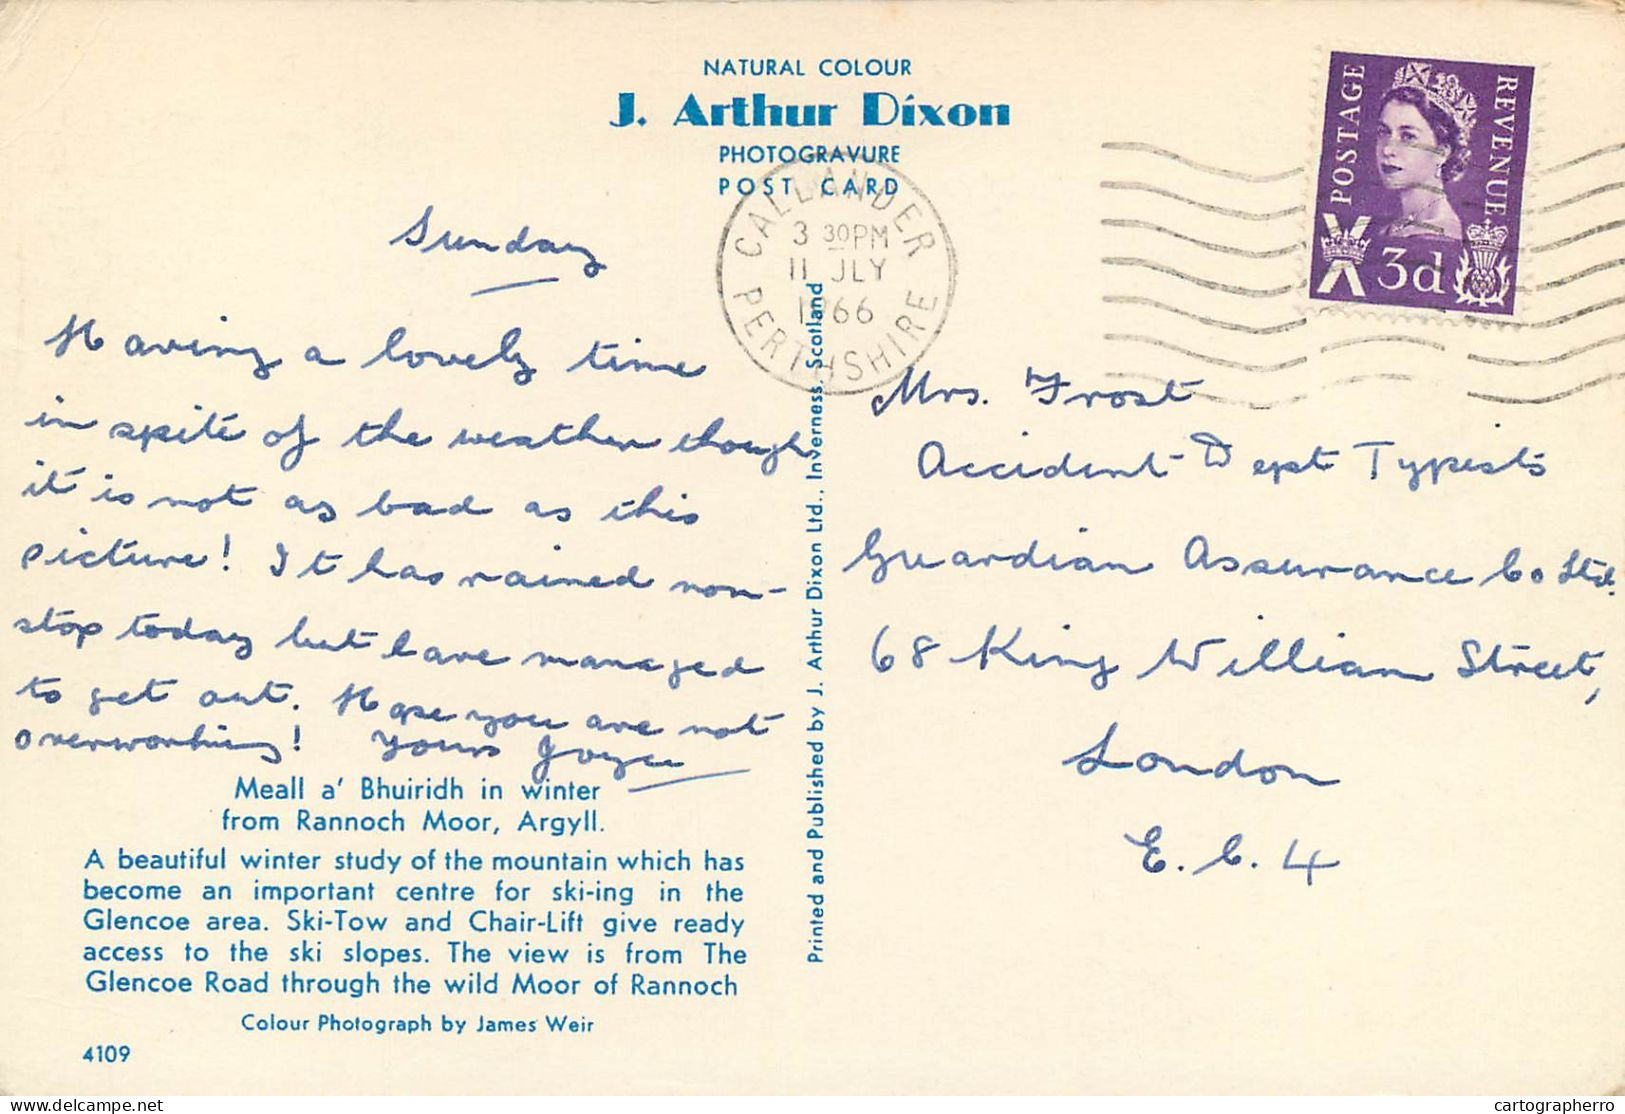 NATURAL COLOUR
J. Arthur Dixon
PHOTOGRAVURE
POST CARD
CALLANDER
3 30PM
11 JLY
1966
PERTHSHIRE
POSTAGE
REVENUE
3d
Sunday
Having a lovely time
in spite of the weather though
it is not as bad as this
picture! It has rained non-
stop today but have managed
to get out. Hope you are not
overworking! Yours Joyce
Meall a' Bhuiridh in winter
from Rannoch Moor, Argyll.
A beautiful winter study of the mountain which has
become an important centre for ski-ing in the
Glencoe area. Ski-Tow and Chair-Lift give ready
access to the ski slopes. The view is from The
Glencoe Road through the wild Moor of Rannoch
Colour Photograph by James Weir
4109
Printed and Published by J. Arthur Dixon Ltd., Inverness, Scotland
Mrs. Frost
Accident Dept Typists
Guardian Assurance Co Ltd.
68 King William Street,
London
E.C.4
delcampe.net
cartographerro